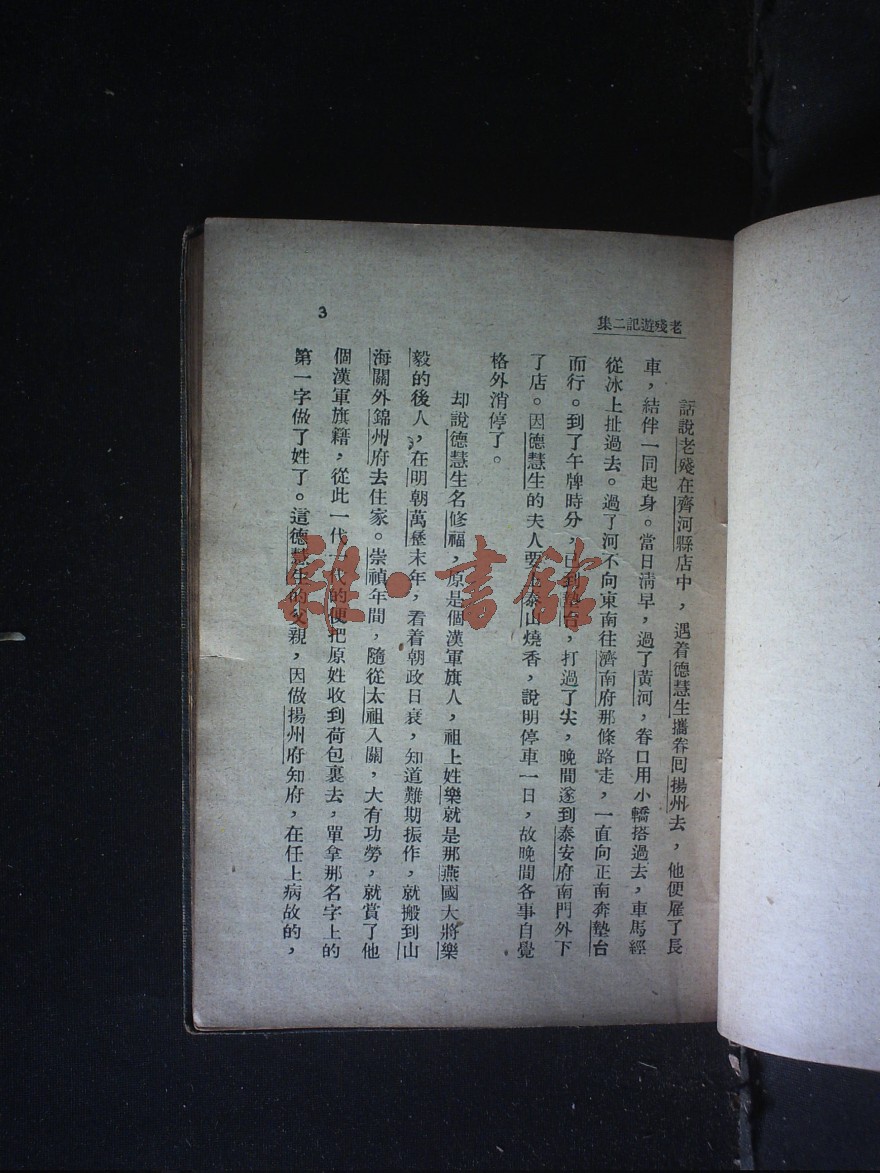 老殘遊記二集
話說老殘在齊河縣店中，遇着德慧生攜眷囘揚州去，他便雇了長
車，結伴一同起身。當日淸早，過了黃河，眷口用小轎搭過去，車馬經
從冰上扯過去。過了河不向東南往濟南府那條路走，一直向正南奔墊台
而行。到了午牌時分，已到墊台，打過了尖，晚間遂到泰安府南門外下
了店。因德慧生的夫人要上泰山燒香，說明停車一日，故晚間各事自覺
格外消停了。
却說德慧生名修福，原是個漢軍旗人，祖上姓樂就是那燕國大將樂
毅的後人，在明朝萬曆末年，看着朝政日衰，知道難期振作，就搬到山
海關外錦州府去住家。崇禎年間，隨從太祖入關，大有功勞，就賞了他
個漢軍旗籍，從此一代一代的便把原姓收到荷包裏去，單拿那名字上的
第一字做了姓了。這德慧生的父親，因做揚州府知府，在任上病故的，
3
雜·書館